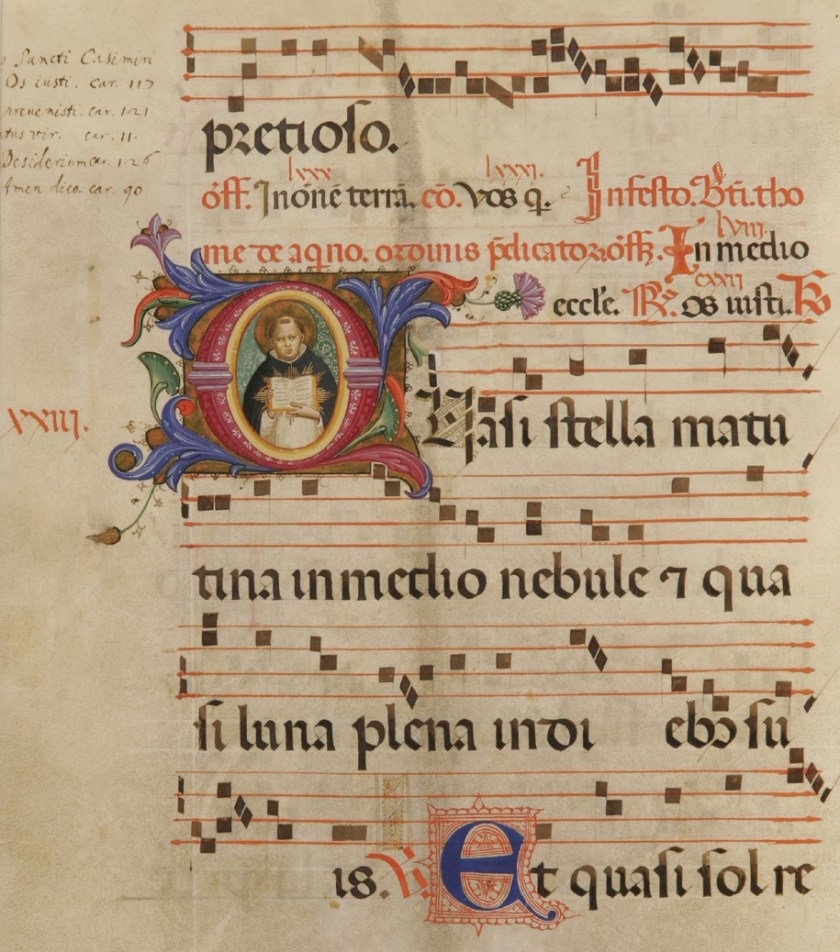 Sancti Casimiri
Os iusti. car. 117
preuenisti. car. 121
atus vir. car. 11.
Desiderium car. 126
Amen dico. car. 90
pretioso.
lxxx lxxxi.
off. In onē terrā. cō. Vos q. In festo. Bti. tho
me de aqno. ordinis pdicatoꝝ. off. In medio
lviii.
eccl'e. ℟. Os iusti. ℟
cxxii
XXIII.
Quasi stella matu
tina in medio nebule ⁊ qua
si luna plena in di ebꝫ su
is. ℣ Et quasi sol re